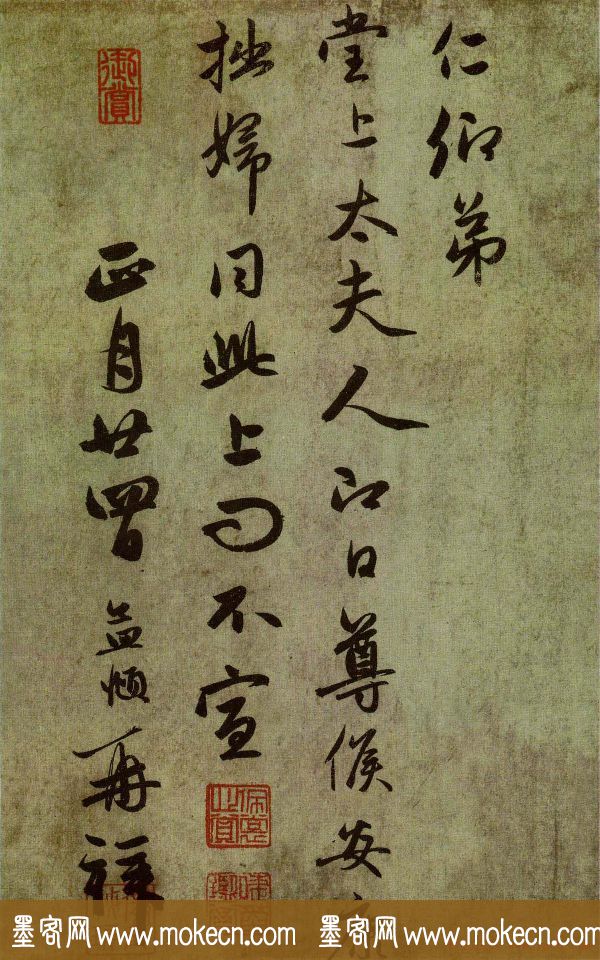 仁卿弟
堂上太夫人即日尊候安康
拙婦同此上问不宣
正月廿四日孟頫再拜
御賞
墨客网 www.mokecn.com 墨客网 www.mokecn.com